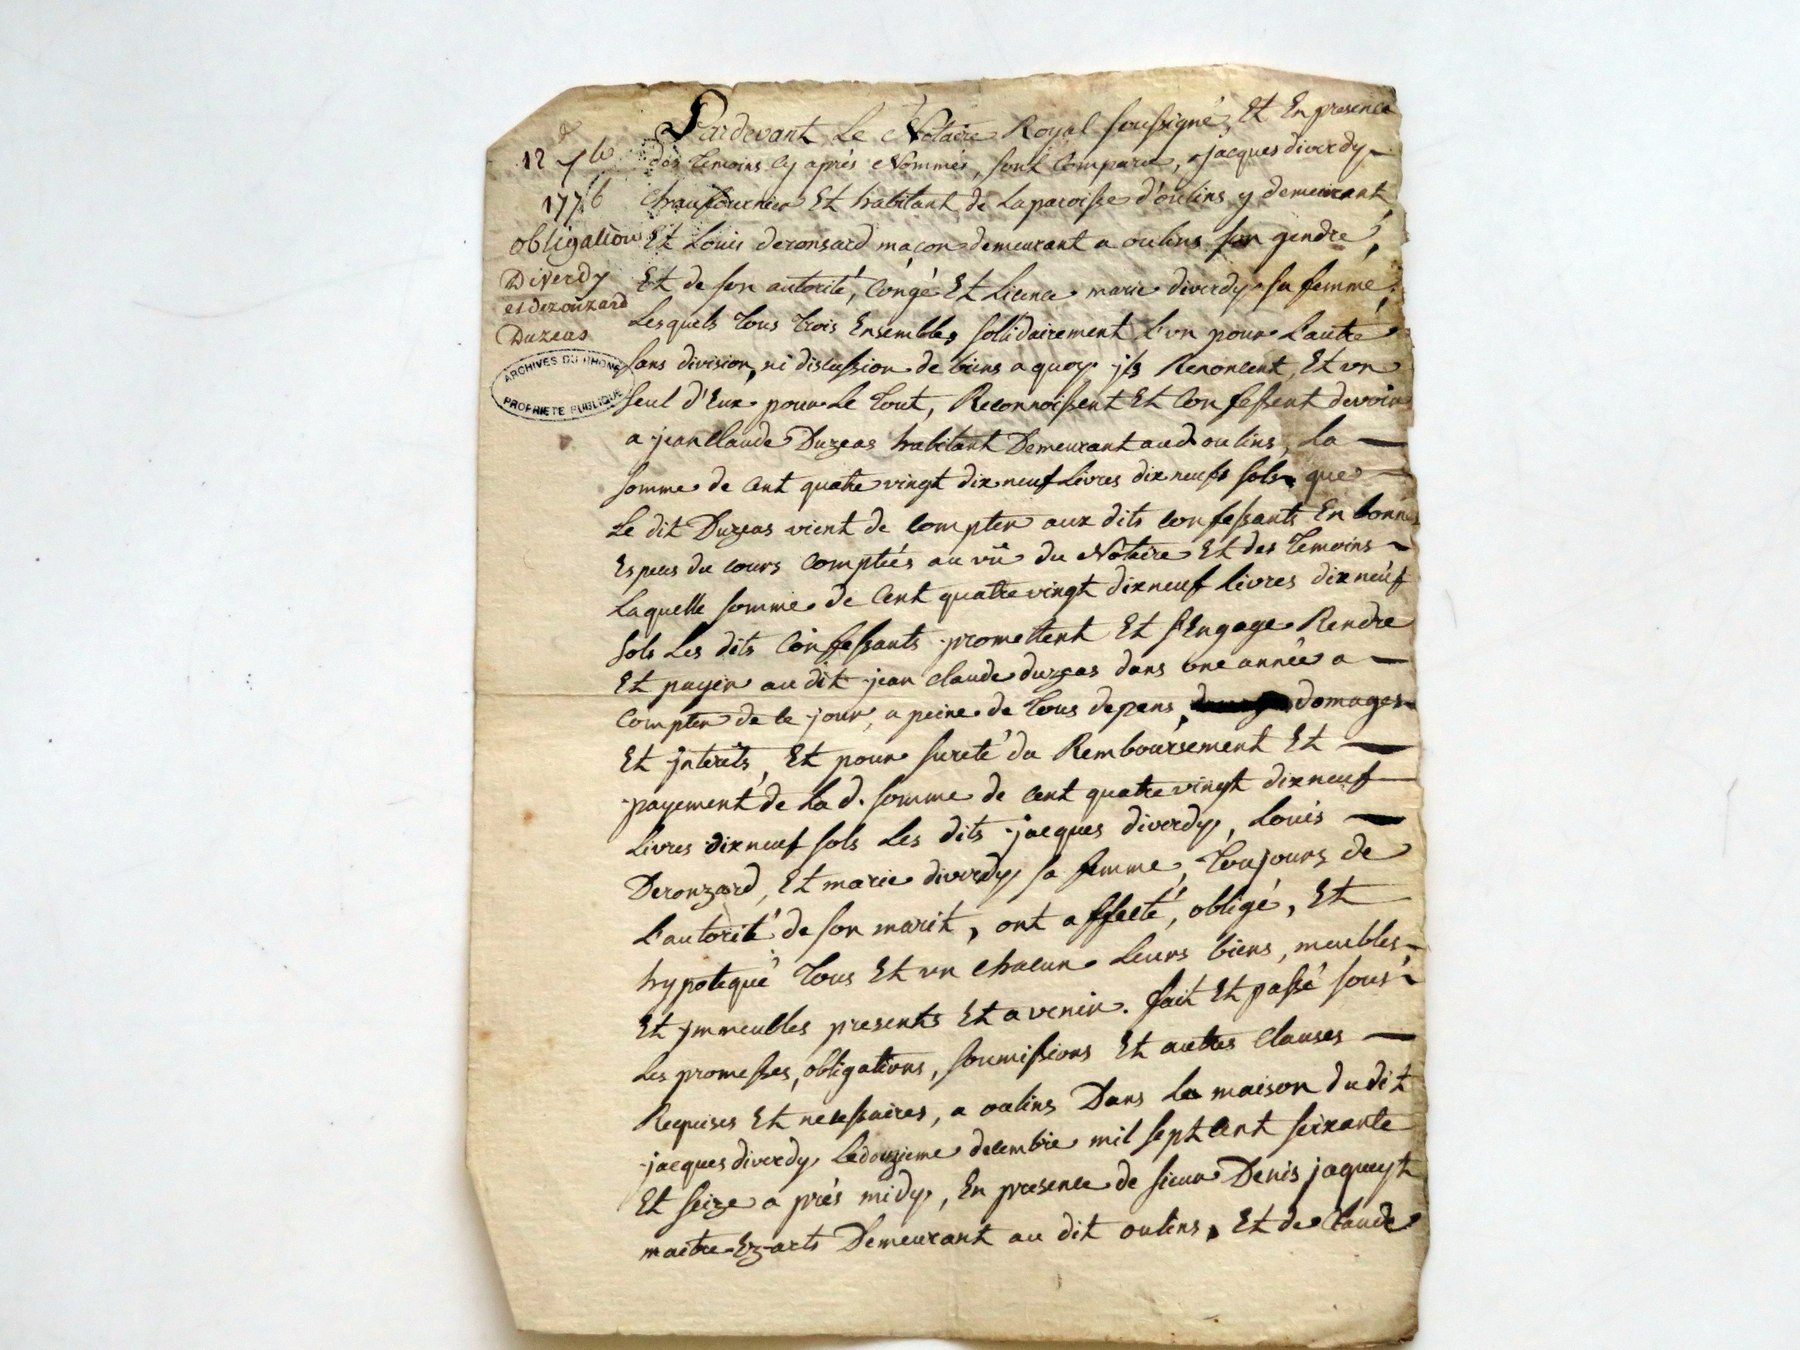 1776
obligation
Diverdy
et derouzard
Duzeas
ARCHIVES DU RHONE
PROPRIETE PUBLIQUE
Pardevant Le Notaire Royal soussigné, Et En presence
des temoins cy aprés Nommés, sont comparu, jacques diverdy
chaufournier Et habitant de La paroisse d'oulins y demeurant
Et Louis deronsard maçon demeurant a oulins son gendre,
Et de son autorité, congé Et Licence marie diverdy sa femme,
Lesquels tous trois Ensembles solidairement L'un pour L'autre
sans division, ni discussion de biens a quoy ils Renoncent, Et un
seul d'Eux pour Le tout, Reconnoissent Et Confessent devoir
a jean Claude Duzeas habitant Demeurant aud oulins, La
somme de Cent quatre vingt dix neuf Livres dix neufs sols que
Le dit Duzeas vient de compter aux dits confessants En bonnes
Especes du cours comptées au vû du Notaire Et des temoins
Laquelle somme de Cent quatre vingt dix neuf livres dix neuf
sols Les dits Confessants promettent Et s'Engage Rendre
Et payer au dit jean Claude duzeas dans une année a
compter de ce jour, a peine de tous depens, domages
Et jnterêts, Et pour sureté du Remboursement Et
payement de La d. somme de cent quatre vingt dix neuf
Livres dix neuf sols Les dits jacques diverdy, Louis
Deronzard, Et marie diverdy sa femme, toujours de
L'autorité de son marit, ont affecté, obligé, Et
hypotequé tous Et un chacun Leurs biens, meubles
Et jmmeubles presents Et a venir. fait Et passé sous
Les promesses, obligations, soumissions Et autres clauses
Requises Et necessaires, a oulins Dans La maison du dit
jacques diverdy Le douzieme decembre mil sept cent soixante
Et seize a prés midy, En presence de sieur Denis jaqueyt
maitre Ez arts Demeurant au dit oulins, Et de Claude